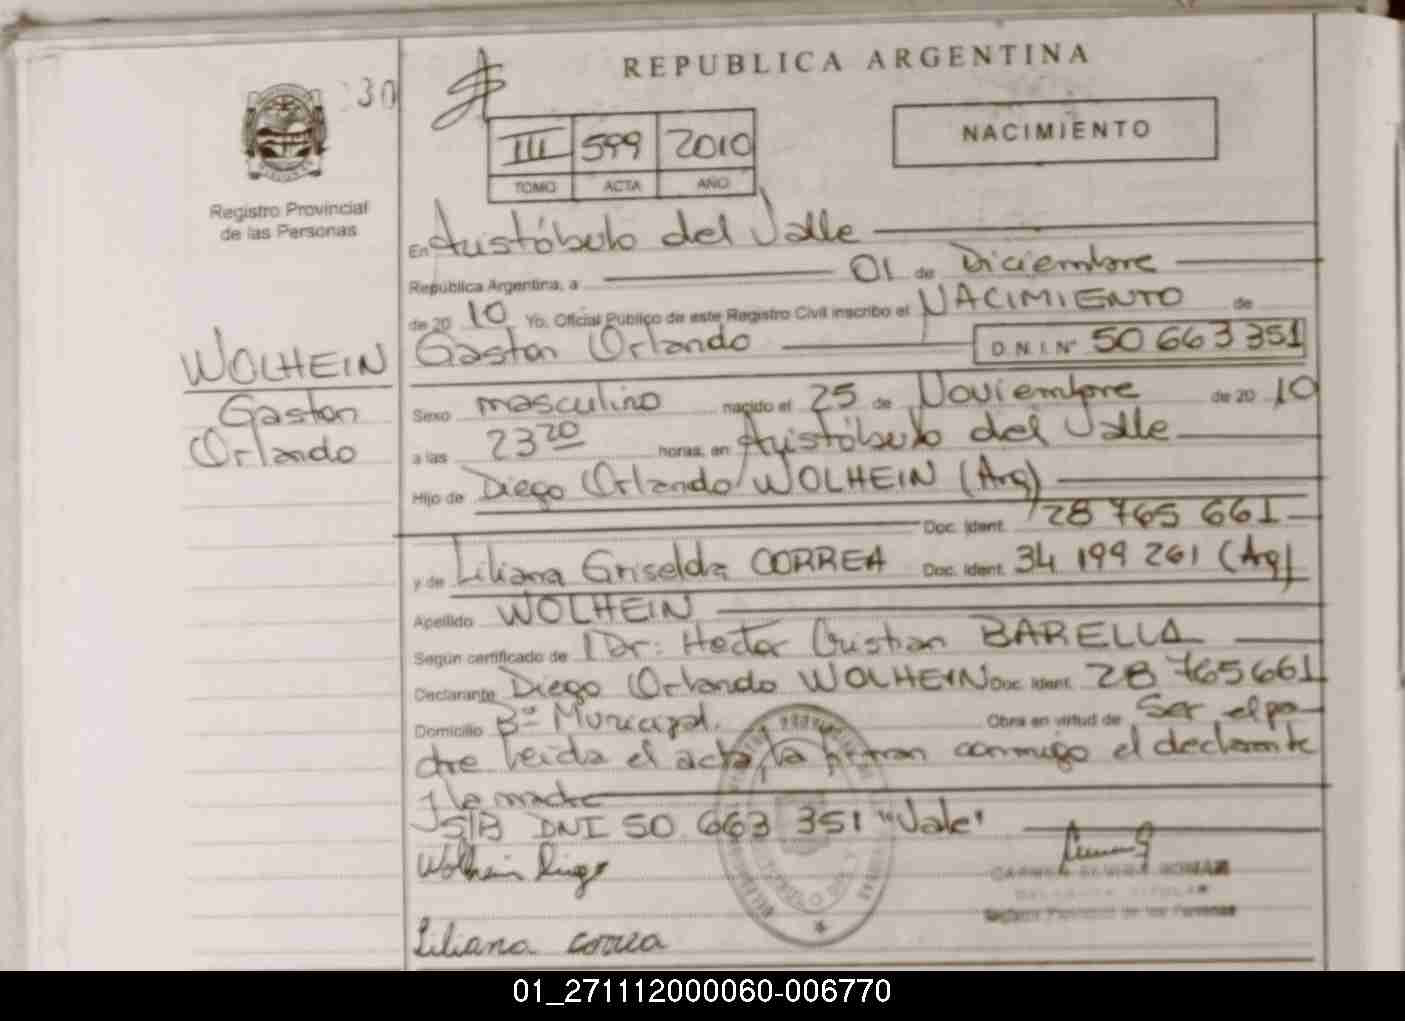 REPUBLICA ARGENTINA
30
NACIMIENTO
III 599 2010
TOMO ACTA AÑO
Registro Provincial
de las Personas
En Aristóbulo del Valle
República Argentina, a 01 de Diciembre
de 20 10 Yo, Oficial Público de este Registro Civil inscribo el NACIMIENTO de
WOLHEIN
Gaston
Orlando
Gaston Orlando D.N.I.Nº 50 663 351
Sexo masculino nacido el 25 de Noviembre de 20 10
a las 23 20 horas, en Aristóbulo del Valle
Hijo de Diego Orlando WOLHEIN (Arg)
Doc. Ident. 28 765 661
y de Liliana Griselda CORREA Doc. Ident. 34 199 261 (Arg)
Apellido WOLHEIN
Según certificado de Dr: Hector Cristian BARELLA
Declarante Diego Orlando WOLHEIN Doc. Ident. 28 765661
Domicilio Bº Municipal. Obra en virtud de Ser el pa-
dre leida el acta, la firman conmigo el declarante
y la madre
S/B DNI 50 663 351 "Vale"
Wolhein
Registro Provincial de las Personas
Liliana correa
01_271112000060-006770